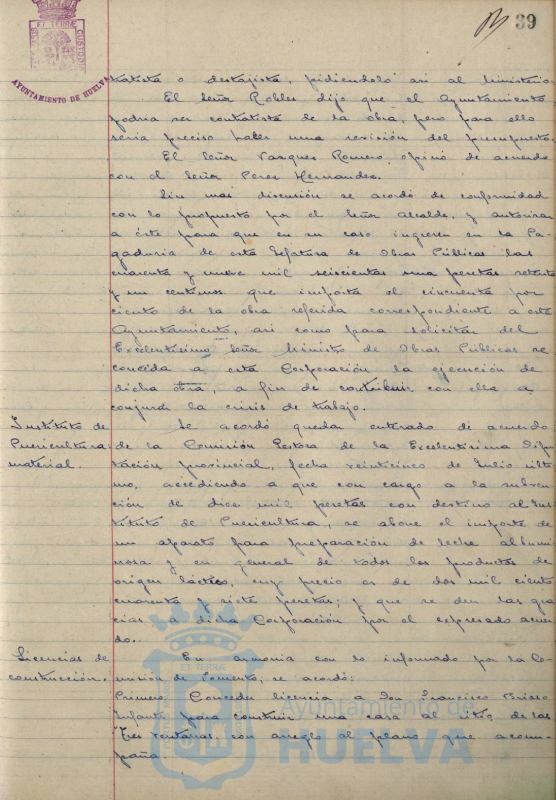 39
AYUNTAMIENTO DE HUELVA
tratista o destajista, pidiendolo asi al Ministerio.
El Señor Robles dijo que el Ayuntamiento
podria ser contratista de la obra, pero para ello
seria preciso haber una revisión del presupuesto.
El Señor Vazquez Romero, opinó de acuerdo
con el Señor Perez Hernandez.
Sin mas discusión se acordó de conformidad
con lo propuesto por el Señor Alcalde, y autorizar
a éste para que en su caso ingrese en la Pa-
gaduria de esta Jefatura de Obras Públicas las
cuarenta y nueve mil seiscientas una pesetas
y un centimos que importa el cincuenta por
ciento de la obra referida correspondiente a este
Ayuntamiento, asi como para solicitar del
Excelentisimo Señor Ministro de Obras Públicas se
conceda a esta Corporación la ejecución de
dicha obra, a fin de contribuir con ella a
conjurar la crisis de trabajo.
Instituto de
Puericultura:
material.
Se acordó quedar enterado de acuerdo
de la Comisión Gestora de la Excelentisima Dipu-
tación provincial, fecha veinticinco de Julio últi-
mo, accediendo a que con cargo a la subven-
ción de diez mil pesetas con destino al Ins-
tituto de Puericultura, se abone el importe de
un aparato para preparación de leche albumi-
nosa y en general de todos los productos de
origen lácteo, cuyo precio es de dos mil ciento
cuarenta y siete pesetas; y que se den las gra-
cias a dicha Corporación por el expresado acuer-
do.
Licencias de
construcción.
En armonia con lo informado por la Co-
misión de Fomento, se acordó:
Primero: Conceder licencia a Don Francisco
Infante para construir una casa al sitio de las
"Tres Ventanas", con arreglo al plano que acom-
paña
Ayuntamiento de
HUELVA